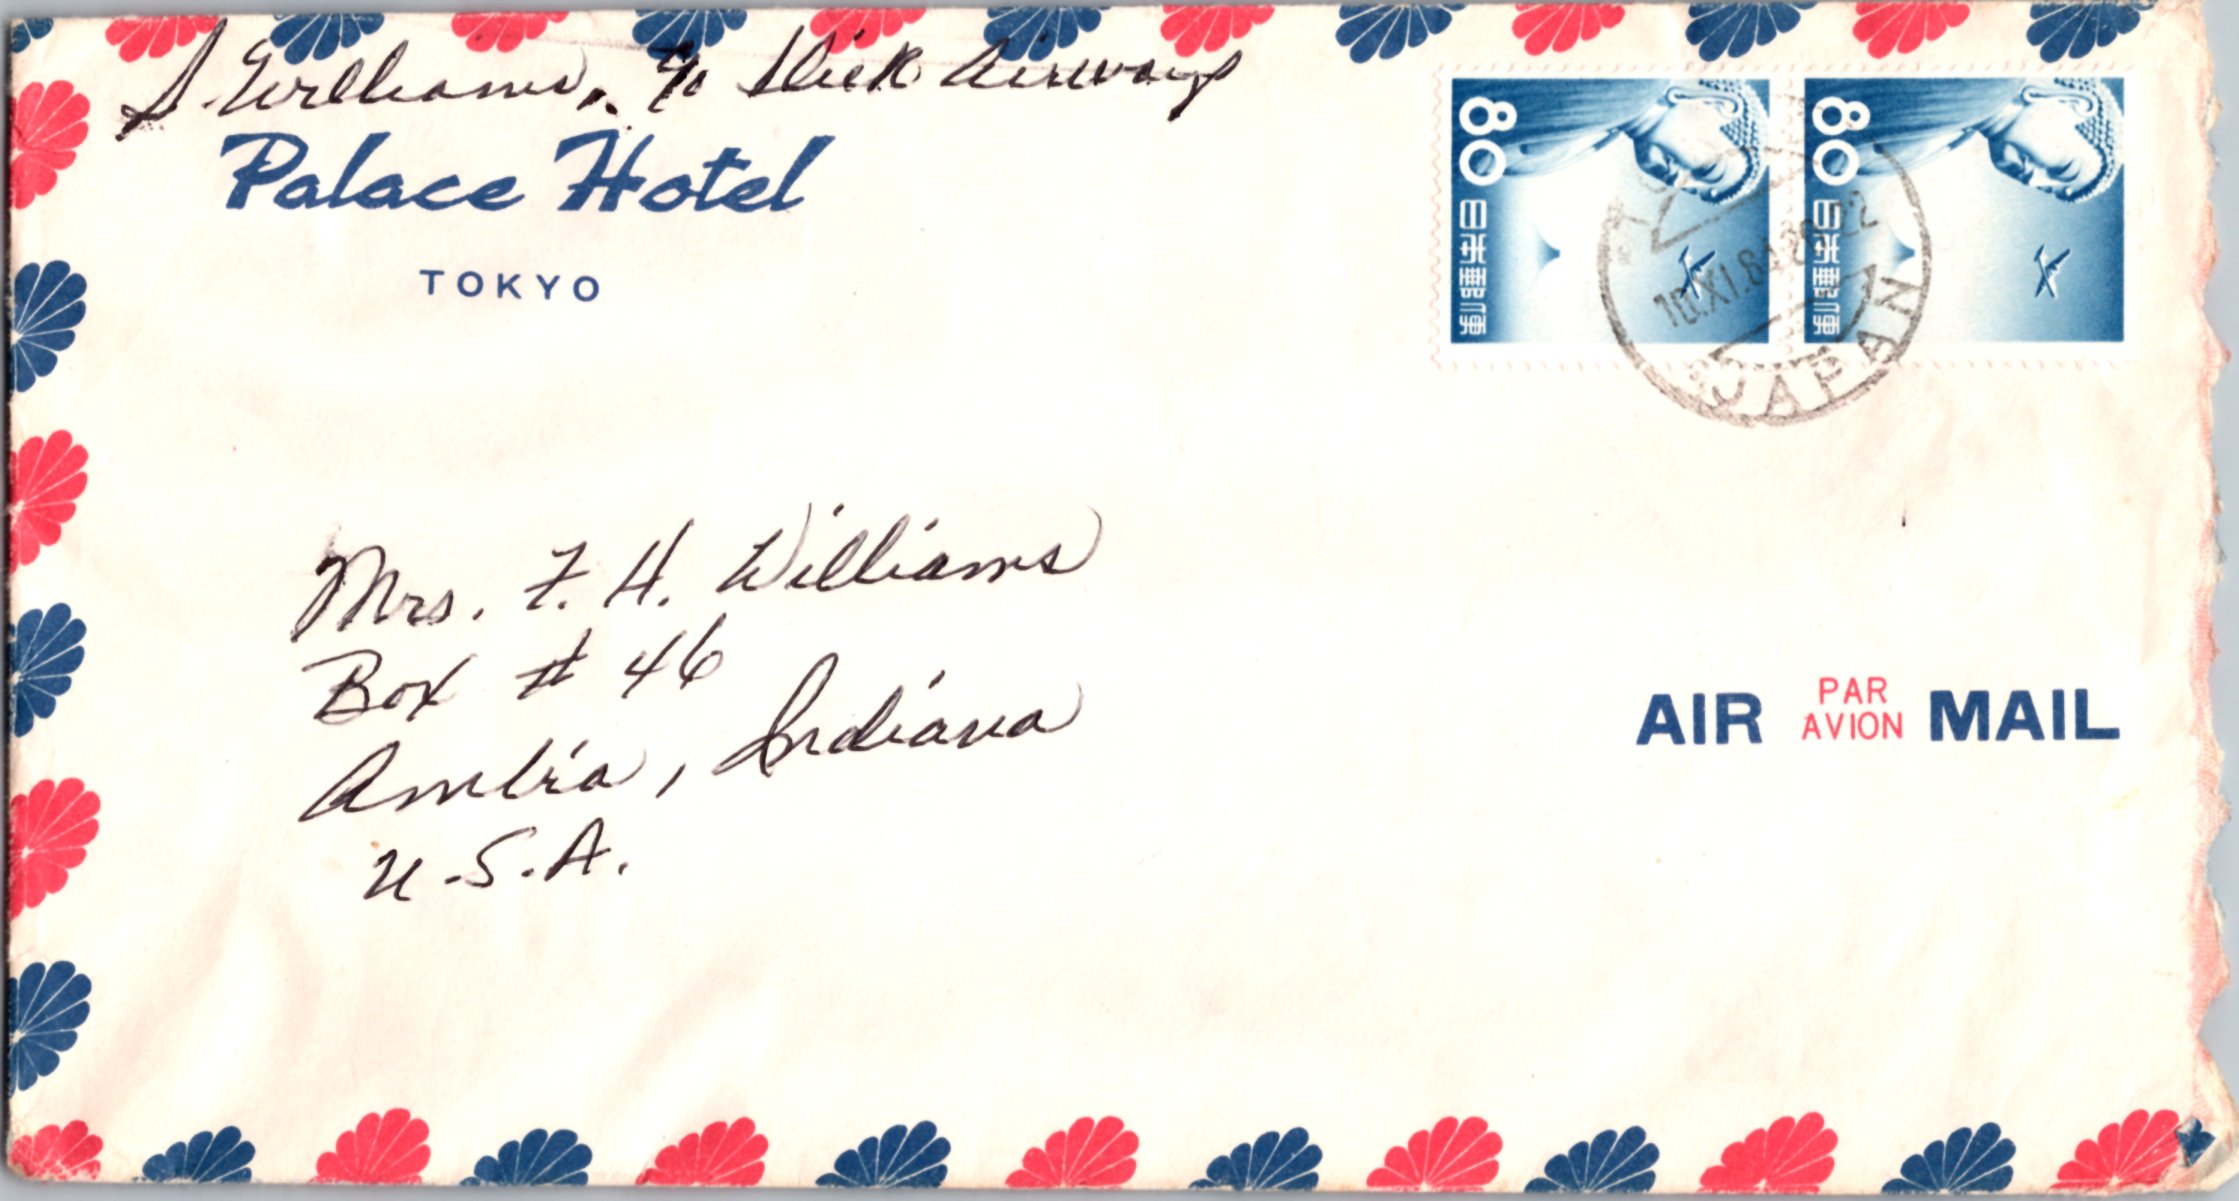 S. Williams, c/o Slick Airways
Palace Hotel
TOKYO
80
日本郵便
80
日本郵便
10.XI.64
JAPAN
Mrs. F. H. Williams
Box # 46
Ambia, Indiana
U.S.A.
AIR PAR AVION MAIL